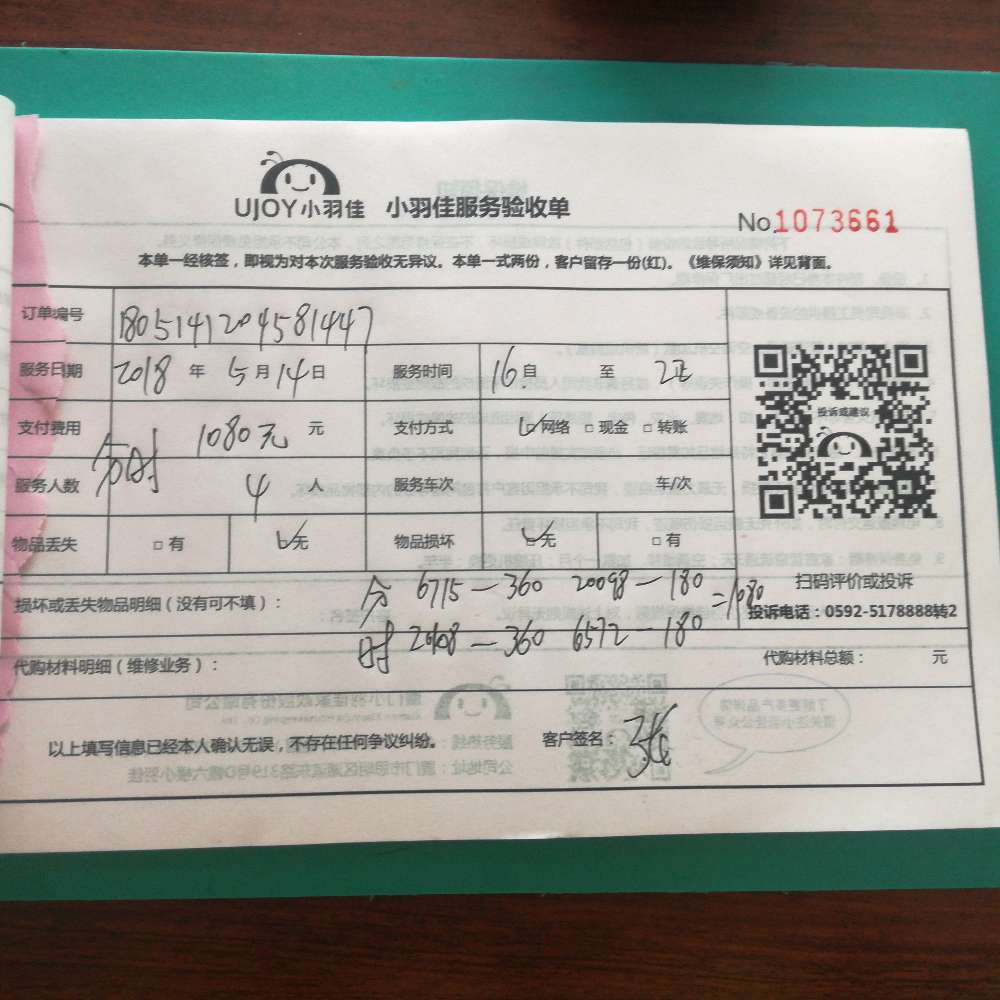 UJOY小羽佳 小羽佳服务验收单
No.1073661
本单一经核签，即视为对本次服务验收无异议。本单一式两份，客户留存一份(红)。《维保须知》详见背面。
订单编号 180514120458 1447
服务日期 2018 年 5 月 14 日 服务时间 16 自 至 2
支付费用 1080元 元 支付方式 ☑网络 □现金 □转账
投诉或建议
服务人数 4 人 服务车次 车/次
物品丢失 □有 ☑无 物品损坏 ☑无 □有
扫码评价或投诉
损坏或丢失物品明细（没有可不填）： 6715—360 20098—180 =1080
投诉电话：0592-5178888转2
时 26108—360 6572—180
代购材料明细（维修业务）： 代购材料总额： 元
以上填写信息已经本人确认无误，不存在任何争议纠纷。 客户签名：